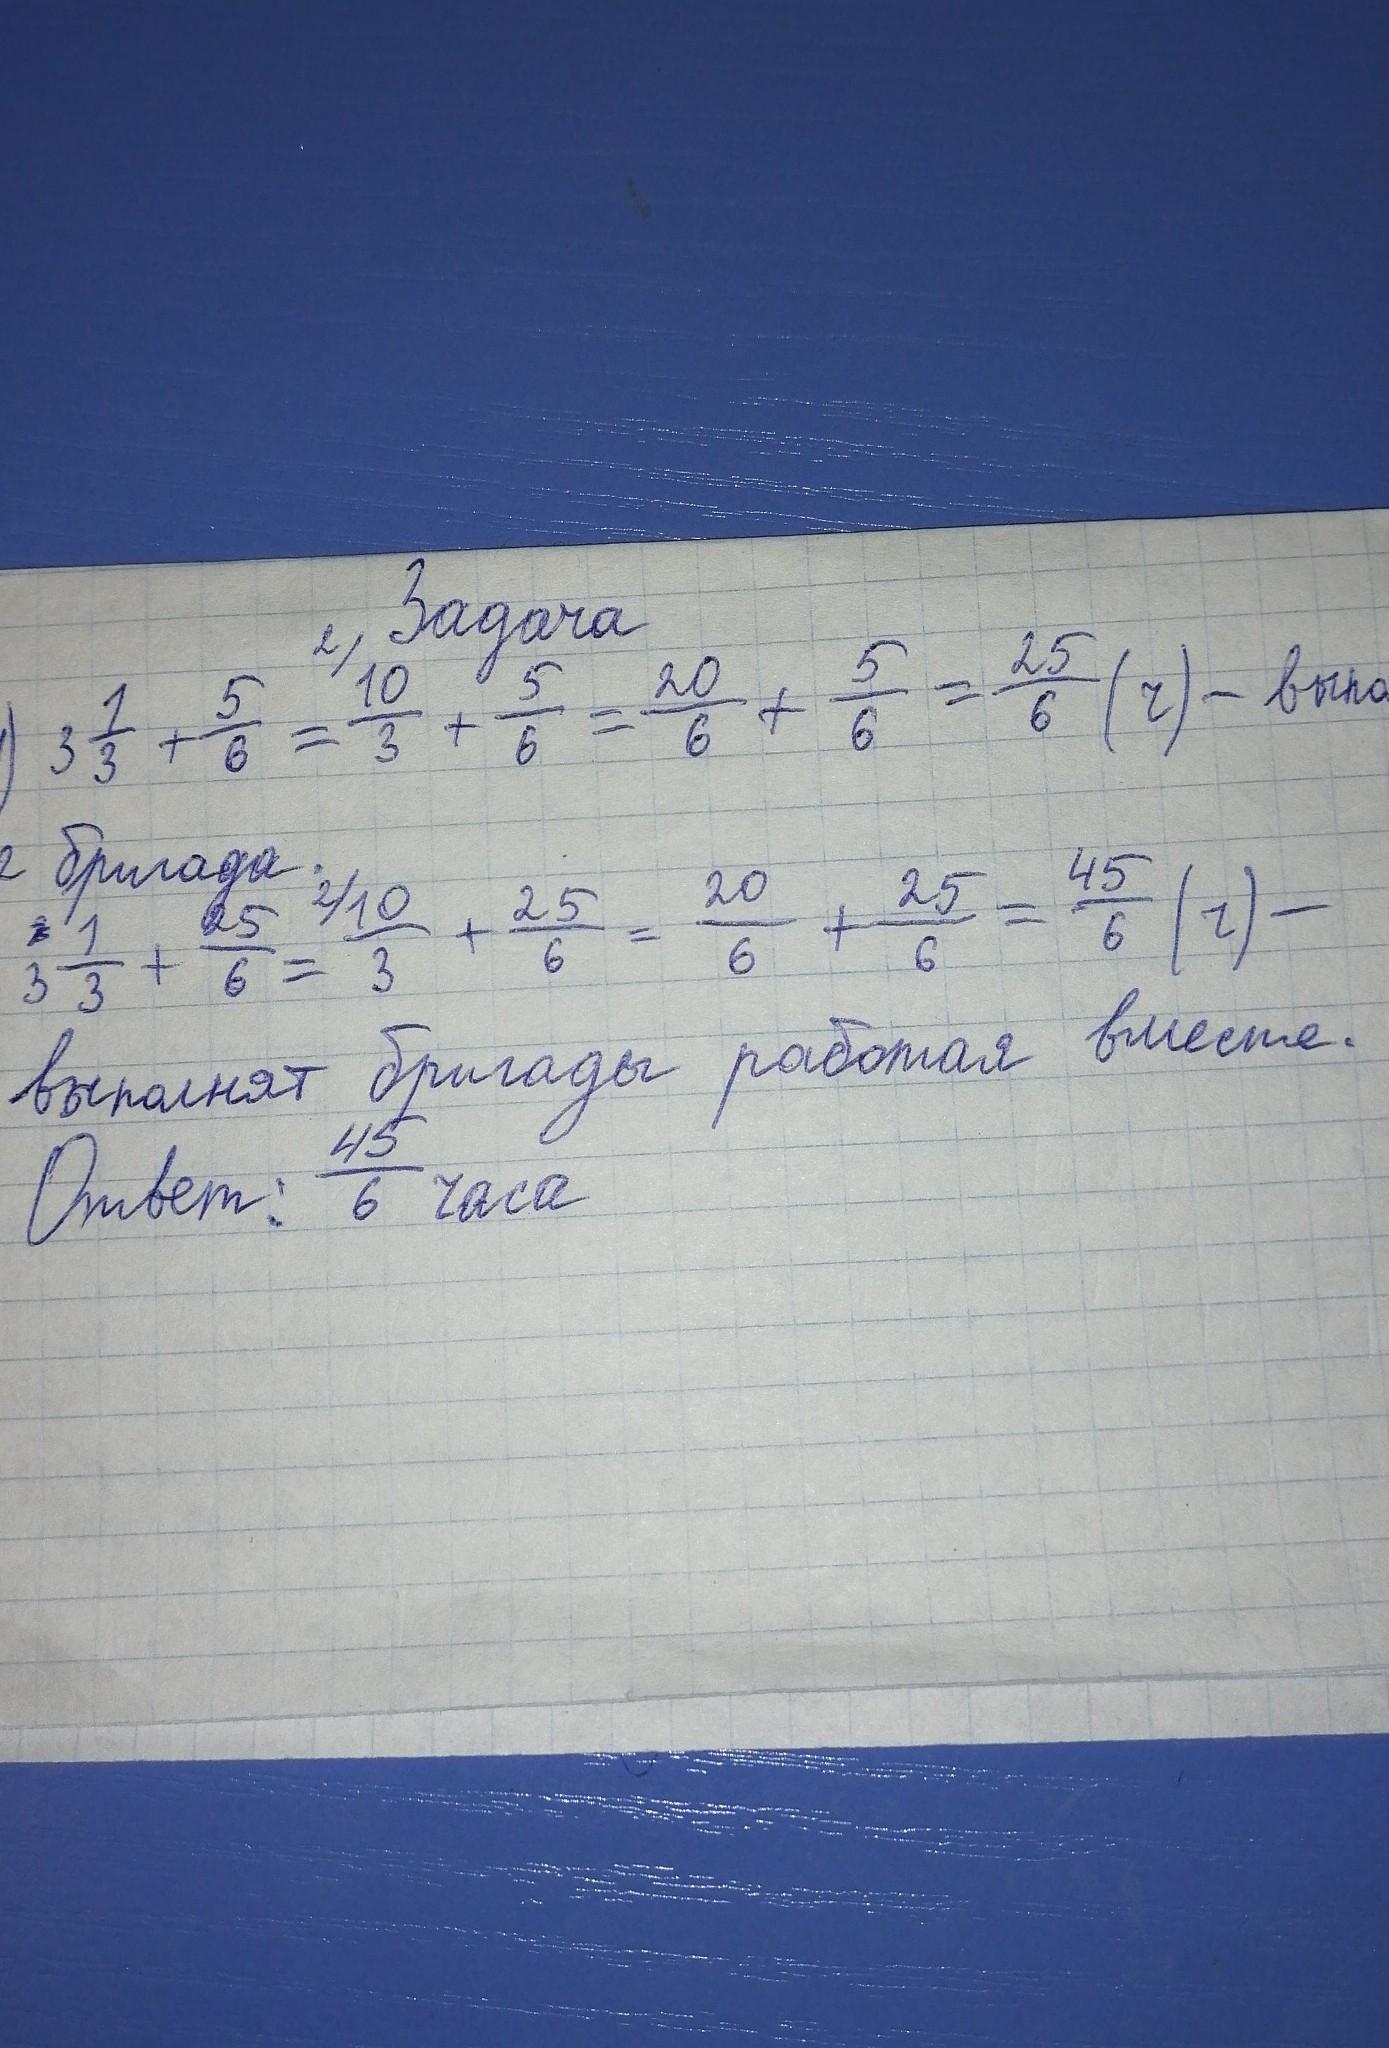 Задача
1) 3 1/3 + 5/6 = 2/ 10/3 + 5/6 = 20/6 + 5/6 = 25/6 (ч) - выпо
2 бригада.
3 1/3 + 25/6 = 2/ 10/3 + 25/6 = 20/6 + 25/6 = 45/6 (ч) -
выполнят бригады работая вместе.
Ответ: 45/6 часа